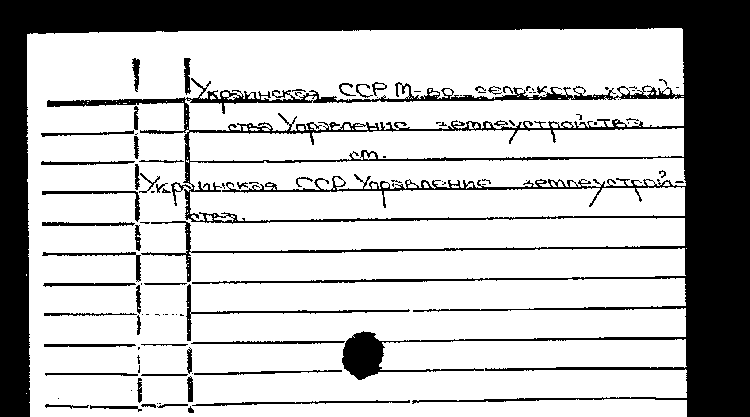 Украинская ССР М-во сельского хозяй-
ства Управление землеустройства.
см.
Украинская ССР Управление землеустрой-
ства.